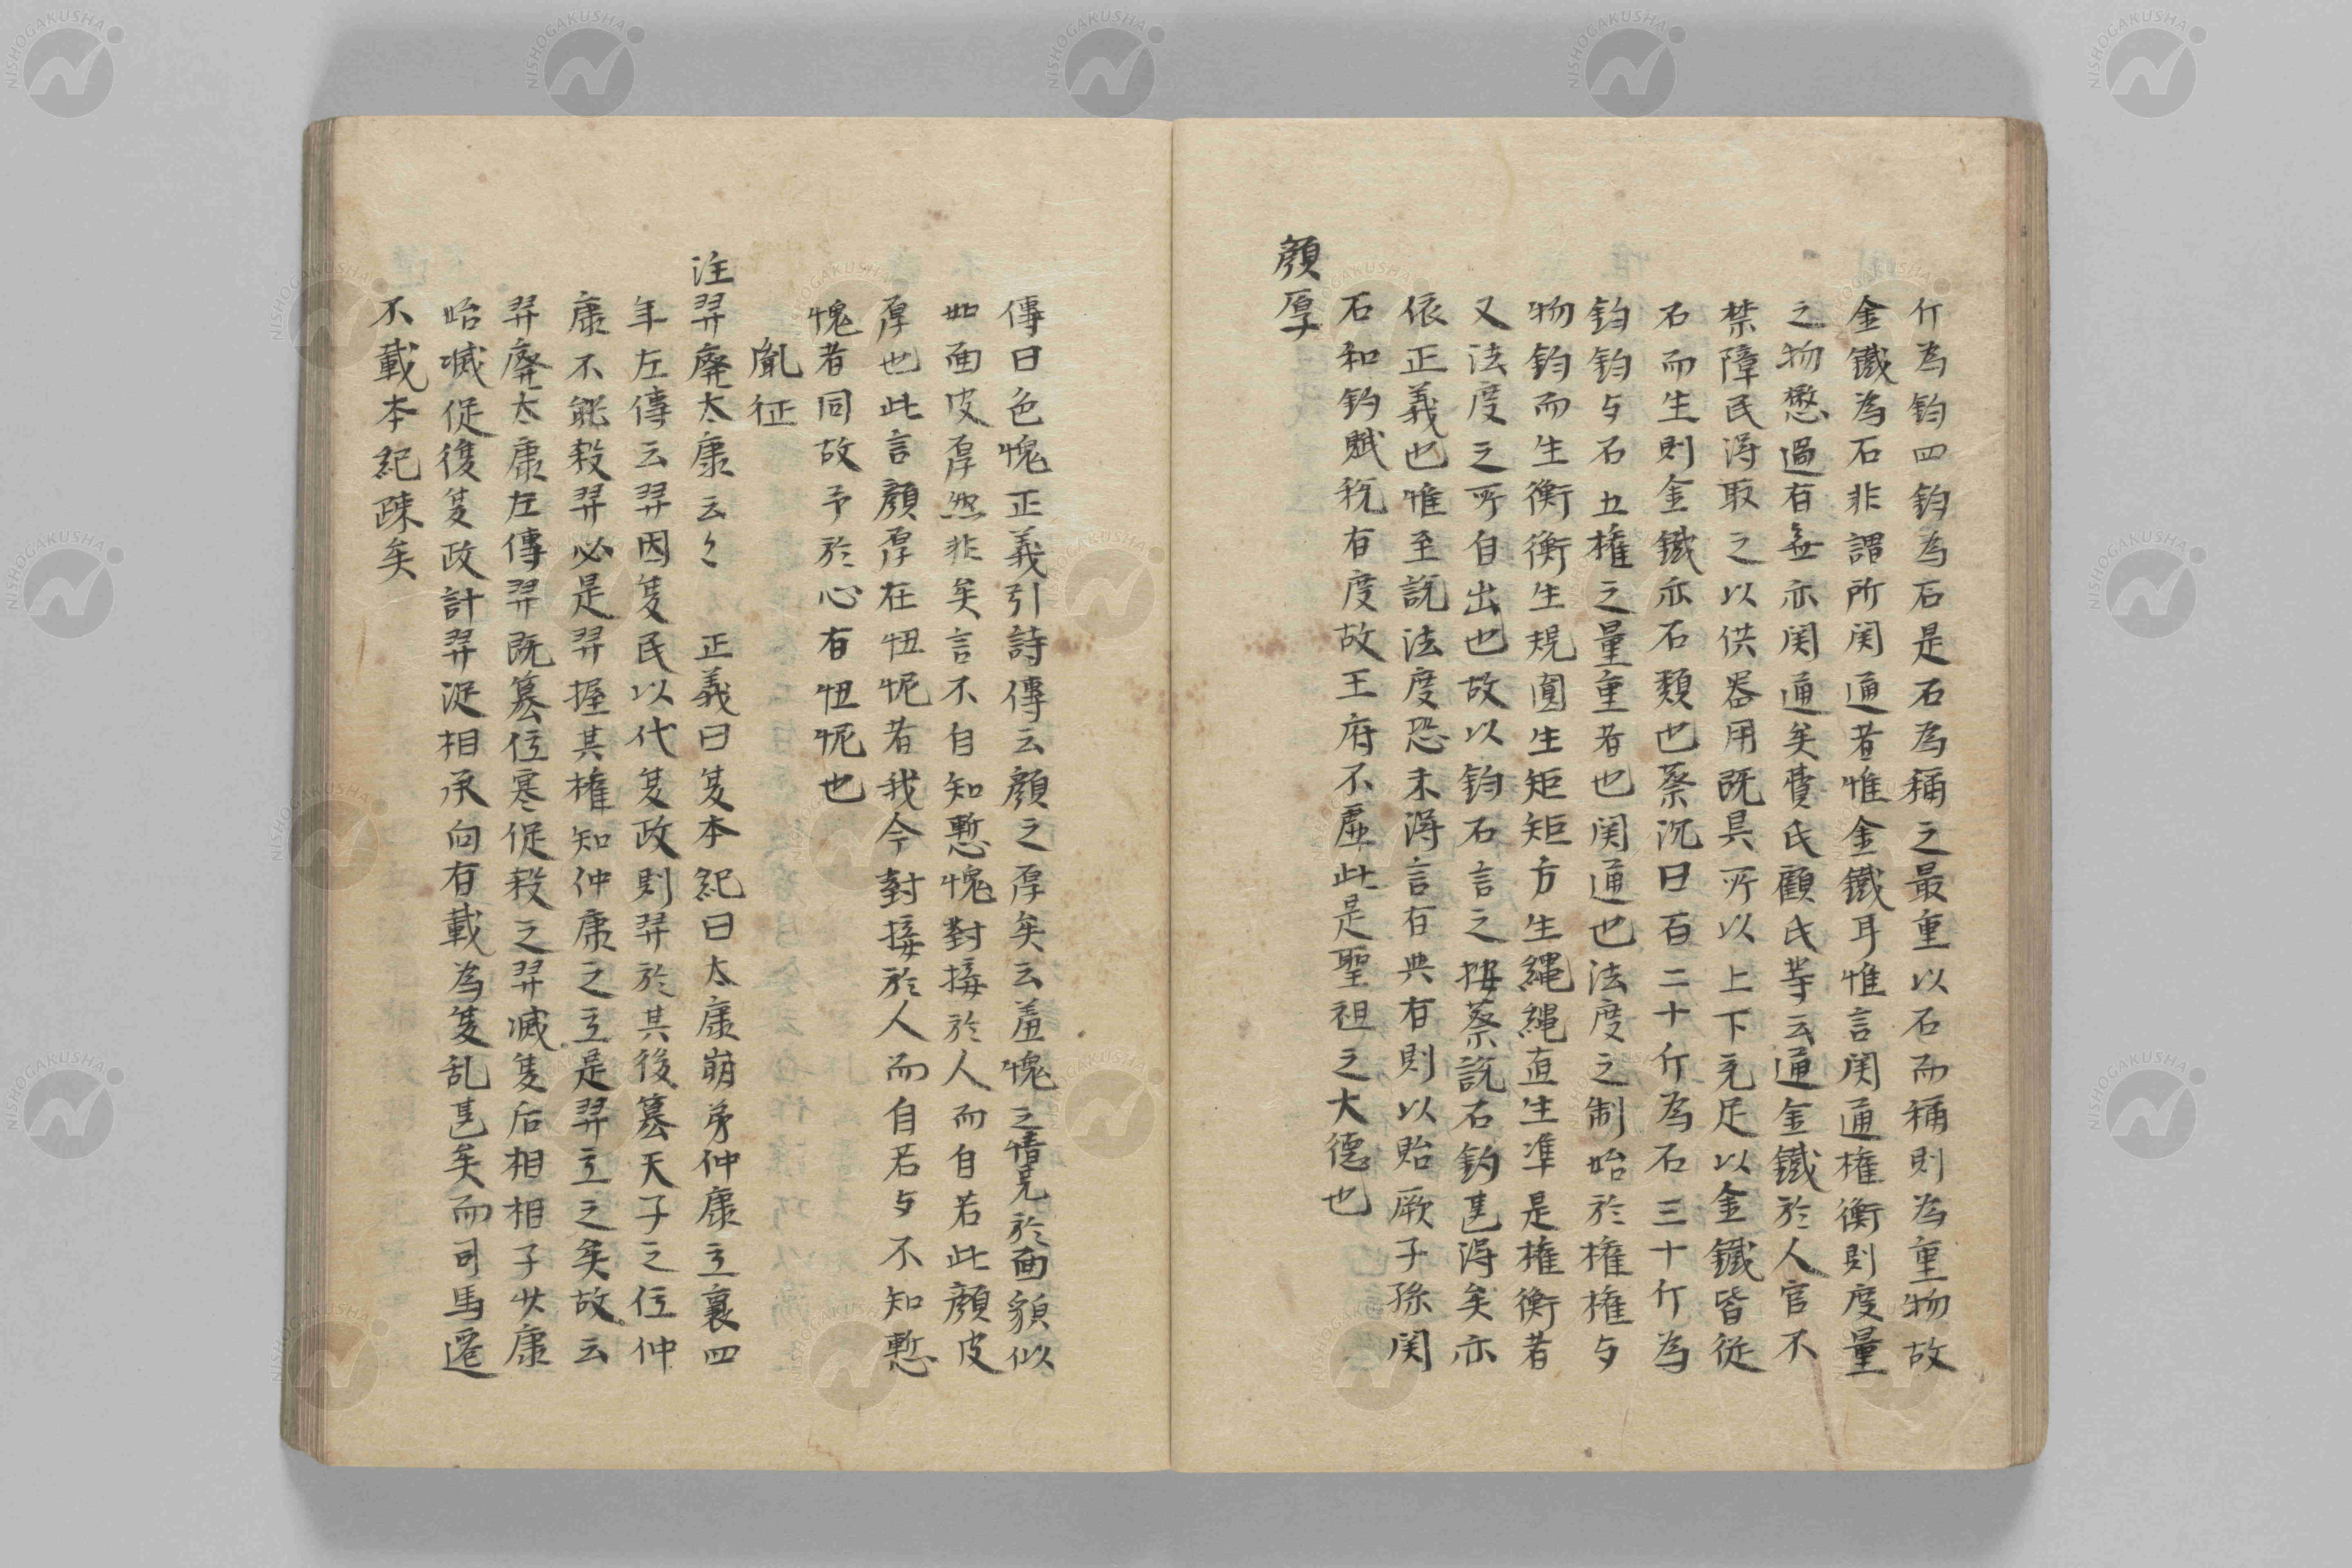 斤為鈞四鈞為石是石為稱之最重以石而稱則為重物故
金鐵為石非謂所関通者惟金鐵耳惟言関通権衡則度量
之物懋遷有無亦関通矣費氏顧氏等云通金鐵於人官不
禁障民得取之以供器用既具所以上下充足以金鐵皆従
石而生則金鐵亦石類也蔡沉曰百二十斤為石三十斤為
鈞鈞与石五権之量重者也関通也法度之制始於権権与
物鈞而生衡衡生規圓生矩矩方生縄縄直生準是権衡者
又法度之所自出也故以鈞石言之按蔡説石鈞甚得矣亦
依正義也惟至説法度恐未得言有典有則以貽厥子孫関
石和鈞賦税有度故王府不虚此是聖祖之大徳也
顔厚
傳曰色愧正義引詩傳云顔之厚矣云羞愧之情見於面貌似
如面皮厚然非矣言不自知慙愧對接於人而自若此顔皮
厚也此言顔厚在忸怩者我今對接於人而自若与不知慙
愧者同故予於心有忸怩也
胤征
注羿廃太康云〻 正義曰夏本紀曰太康崩弟仲康立襄四
年左傳云羿因夏民以代夏政則羿於其後簒天子之位仲
康不能殺羿必是羿握其権知仲康之立是羿立之矣故云
羿廃太康左傳羿既簒位寒促殺之羿滅夏后相相子少康
始滅促復夏政計羿浞相承向有載為夏乱甚矣而司馬遷
不載本紀疎矣
NISHOGAKUSHA